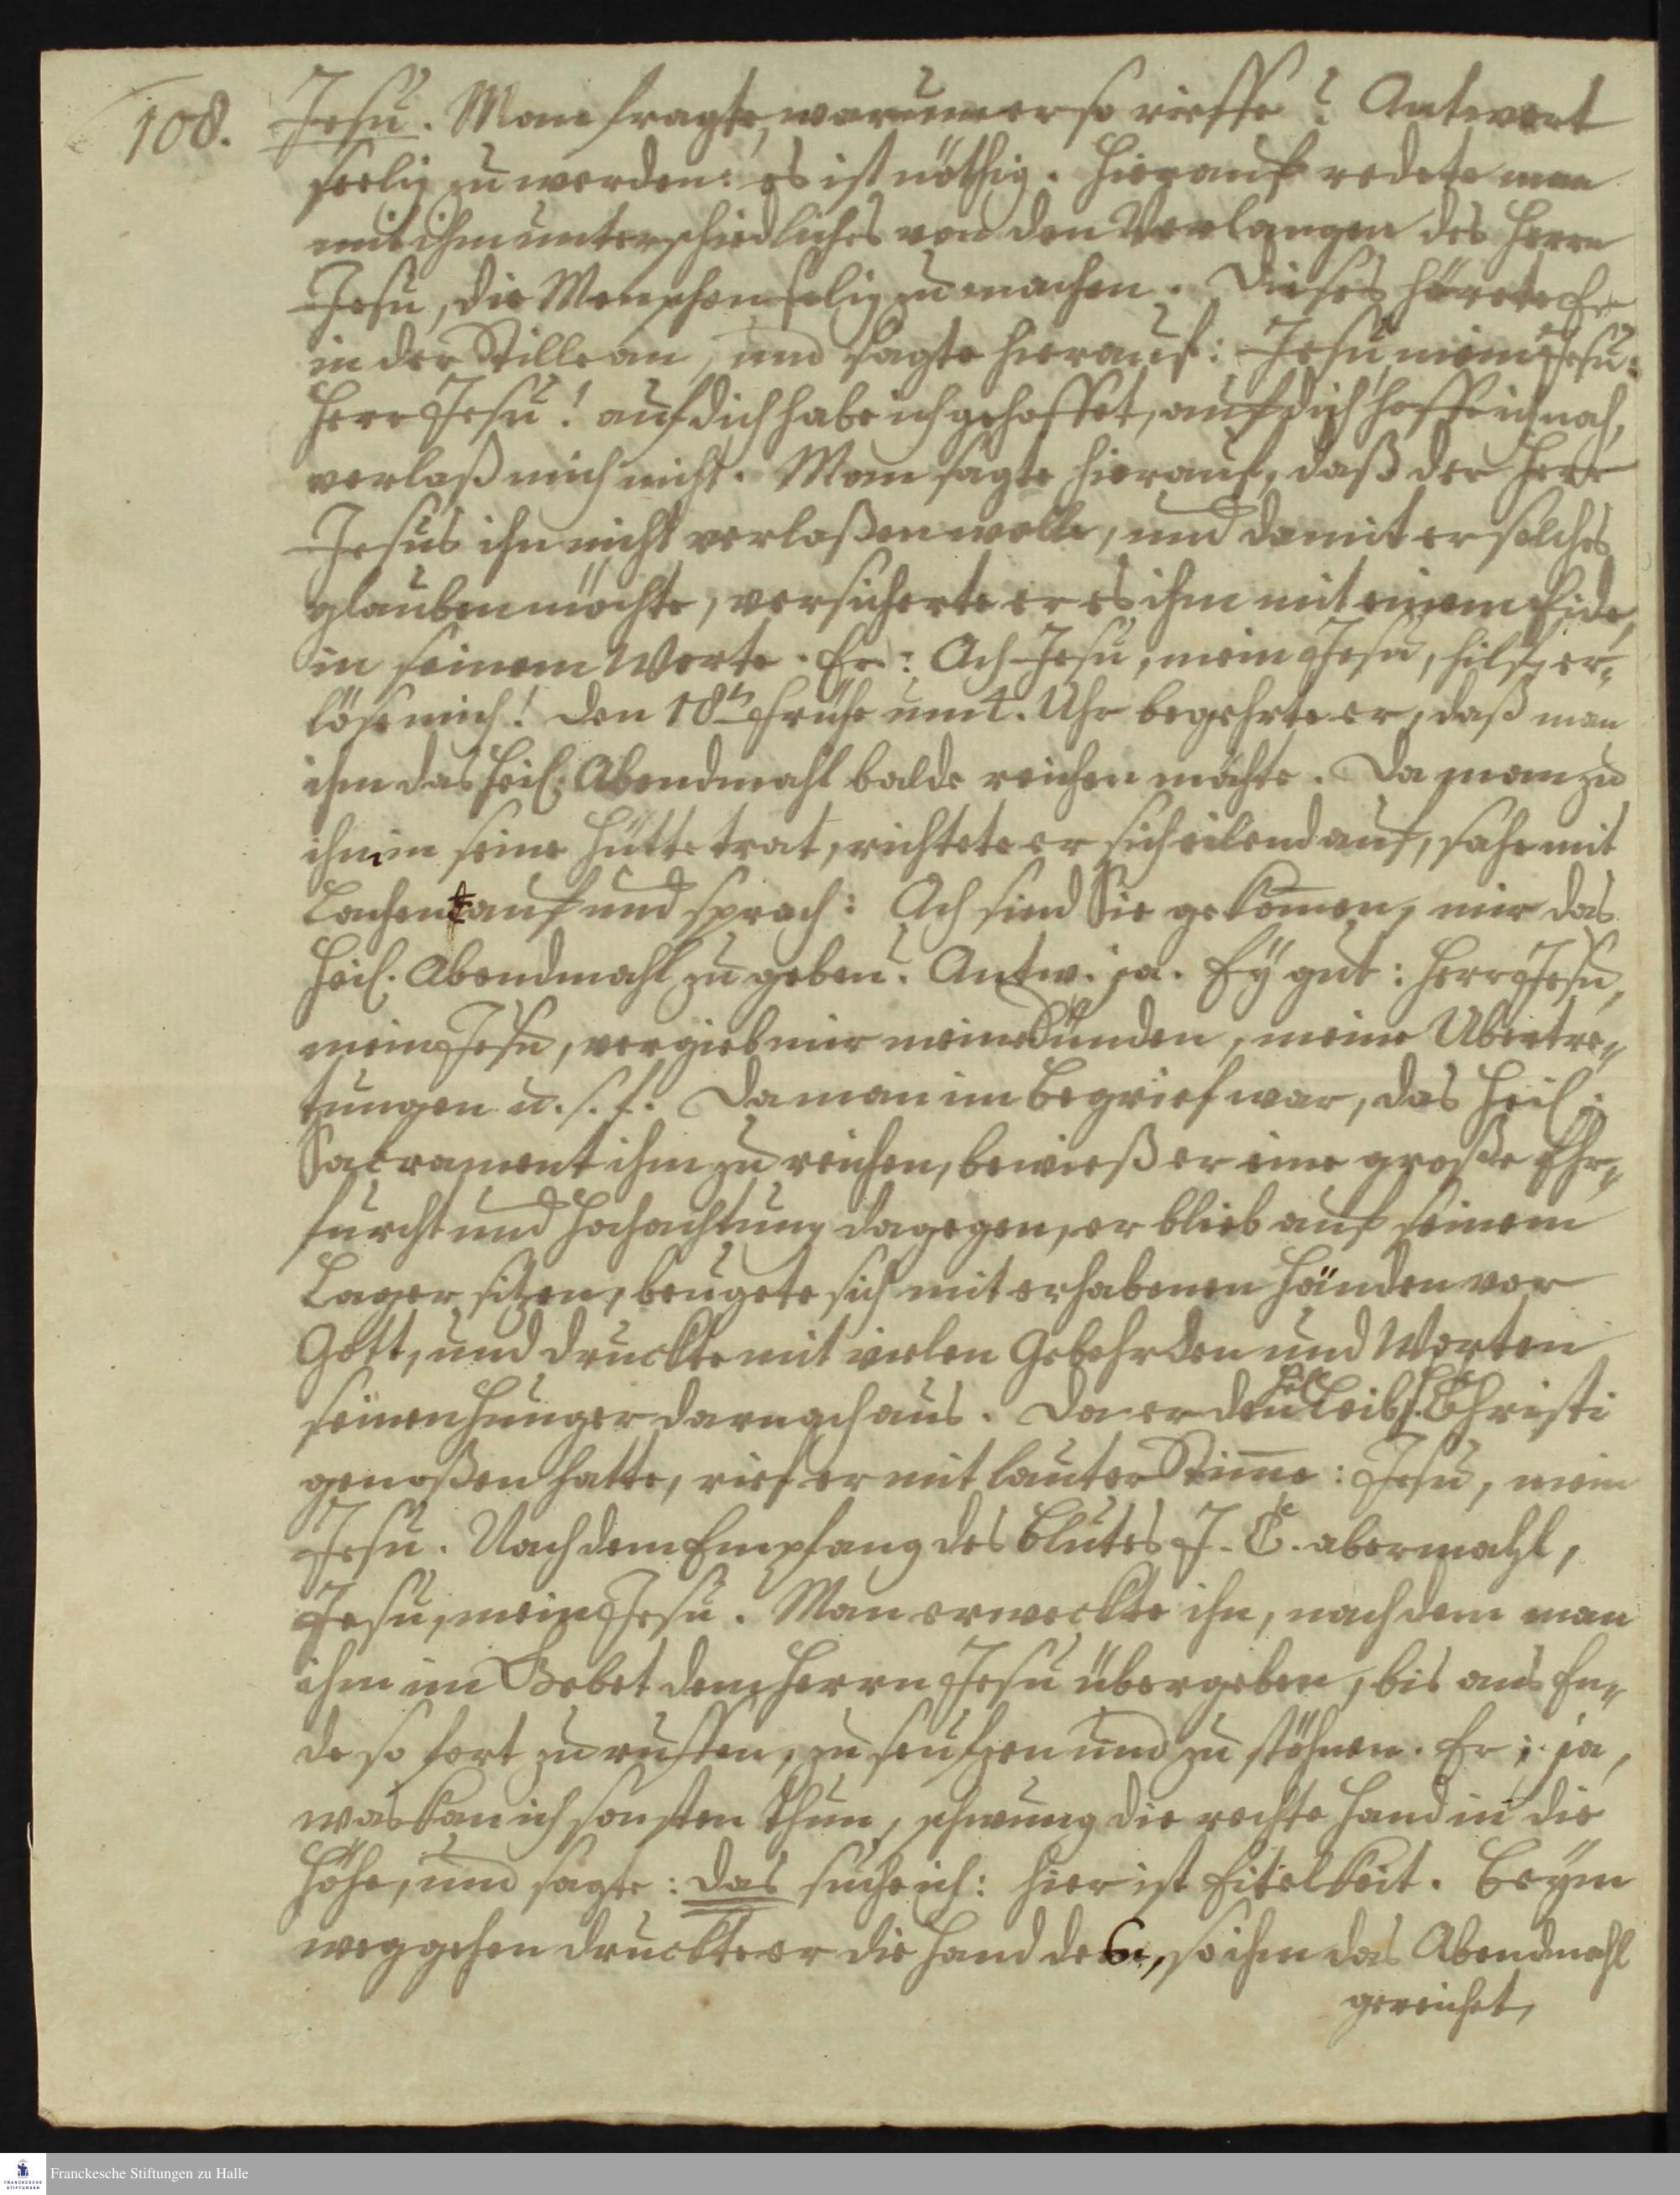 108.
Jesu. Man fragte, warum er so rieffe? Antwort
seelig zu werden: es ist nöthig. Hierauf redete man
mit ihm unterschiedliches von den Verlangen des Herrn
Jesu, die Menschen selig zu machen. Dieses hörete Er
in der Stille an, und sagte hierauf: Jesu, mein Jesu:
Herr Jesu! auf dich habe ich gehoffet, auf dich hoffe ich noch,
verlaß mich nicht. Man sagte hierauf, daß der Herr
Jesus ihn nicht verlaßen wolle, und damit er solches
glauben möchte, versicherte er es ihm mit einem Eide,
in seinem Worte. Er: Ach Jesu, mein Jesu, hilf, er-
löse mich! Den 18tn frühe um 1. Uhr begehrte er, daß man
ihm das heil. Abendmahl balde reichen möchte. Da man zu
ihm in seine Hütte trat, richtete er sich eilend auf, sahe mit
Lachen auf und sprach: Ach sind Sie gekom̄en, mir das
heil. Abendmahl zu geben. Antw. ja. Ey gut: Herr Jesu,
mein Jesu, vergieb mir meine Sünden, meine Ubertre-
tungen u. s. f. Da man im Begrief war, das heil.
Sacrament ihm zu reichen, bewieß er eine große Ehr-
furcht und Hochachtung dagegen, er blieb auf seinem
Lager sitzen, beugete sich mit erhabenen Händen vor
Gott, und druckte mit vielen Gebehrden und Worten
seinen Hunger darnach aus. Da er den Leib Christi
genoßen hatte, rief er mit lauter Stim̄e: Jesu, mein
Jesu. Nach dem Empfang des Blutes J. C. abermahl,
Jesu, mein Jesu. Man erweckte ihn, nach dem man
ihm im Gebet dem Herrn Jesu übergeben, bis ans En-
de so fort zu ruffen, zu seufzen und zu stöhnen. Er: ja,
was kan ich sonsten thun, schwung die rechte Hand in die
Höhe, und sagte: das suche ich: hier ist Eitelkeit. Beym
weggehen druckte er die Hand deßen, so ihm das Abendmahl
gereichet,
Franckesche Stiftungen zu Halle